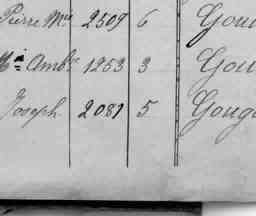 Pierre Mie 2509 6 Goug
Mie Ambse 1253 3 Goug
Joseph 2081 5 Gouge